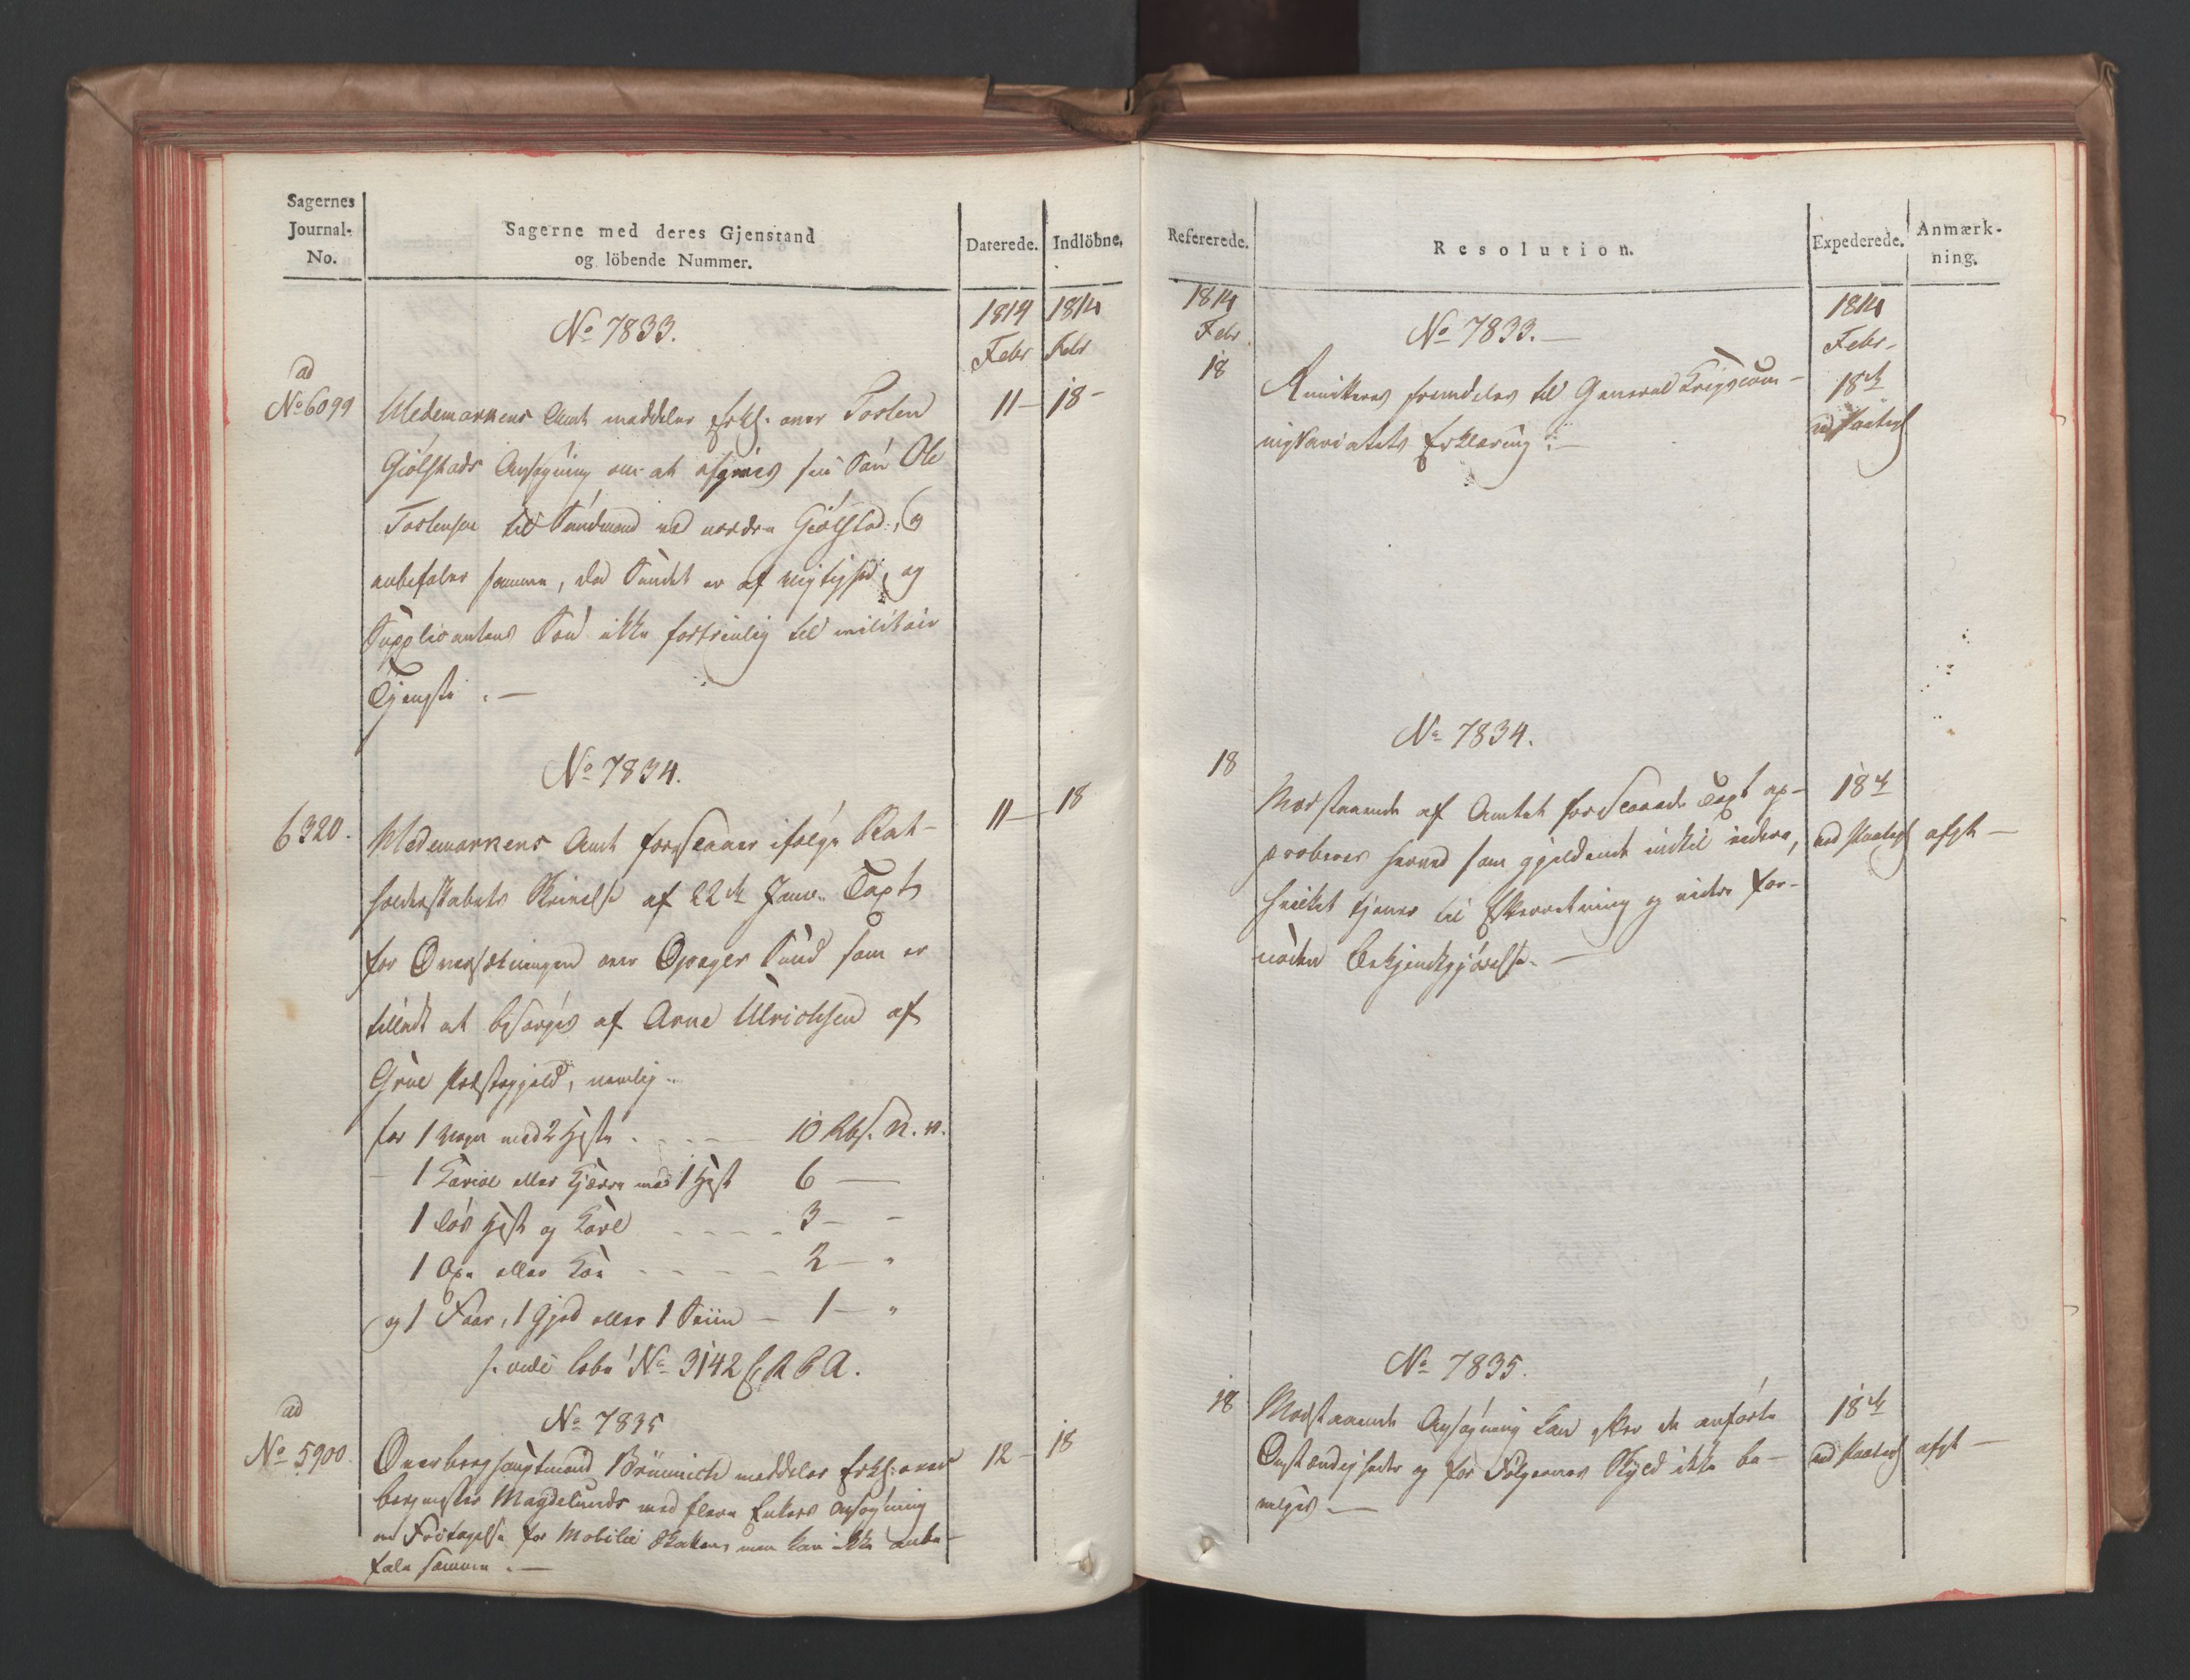 Sagernes
Journal-
No.
Sagerne med deres Gjenstand
og löbende Nummer.
Daterede.
Indlöbne.
1814
Febr
1814
Febr
No 7833.
ad
No 6099
Hedemarkens Amt meddeler Erkl. over Tosten
Giölstads Ansøgning om at afgives sin Søn Ole
Tostensen til Sundmand ved nordre Giölstad, og
anbefaler samme, da Sundet er af Vigtighed, og
Supplicantens Søn ikke fortrinlig til militair
Tjeneste. —
11 —
18 -
No 7834.
6320.
Hedemarkens Amt foreslaaer ifølge Stat-
holderskabets Skrivelse af 22de Janv. Taxt
for Oversætningen over Opager Sund som er
tilladt at besørges af Arne Ulrichsen af
Grue Præstegjeld, nemlig
for 1 Vogn med 2 Heste . - - - 10 Rbs. N. v.
- 1 Cariol eller Kjærre med 1 Hest 6 —
1 løs Hest og Karl - - - - 3 - -
1 Oxe eller Koe - - - - 2 - "
og 1 Faar, 1 Gjed eller 1 Sviin - 1 - "
s. vide No 3142 R A.
11 —
18
No 7835
ad
No 5900.
Overberghauptmand Brünnich meddeler Erkl. over
Bergmester Magdelunds med flere Enkers Ansøgning
om Fritagelse for Mobilie Skatten, men kan ikke anbe-
fale samme. —
12 —
18
Refererede.
Resolution.
Expederede.
Anmærk-
ning.
1814
Febr.
18
No 7833. —
1814
Febr.
Remitteres fremdeles til General Krigscom-
missariatets Erklæring. —
18de
ved Paategn
No 7834.
18
Modstaaende af Amtet foreslaaede Taxt ap-
proberes herved som gjeldende indtil videre,
hvilket tjener til Efterretning og videre for-
nøden Bekjendtgjørelse. —
18de
ved Paategn
afgt —
No 7835.
18
Modstaaende Ansøgning kan efter de anførte
Omstændigheder og for Følgernes Skyld ikke be-
vilges. —
18de
ved Paategn
afgt —